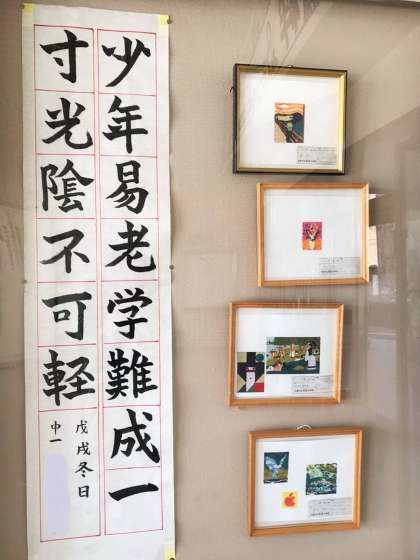 少年易老学難成一
寸光陰不可軽
戊戌冬日
中一